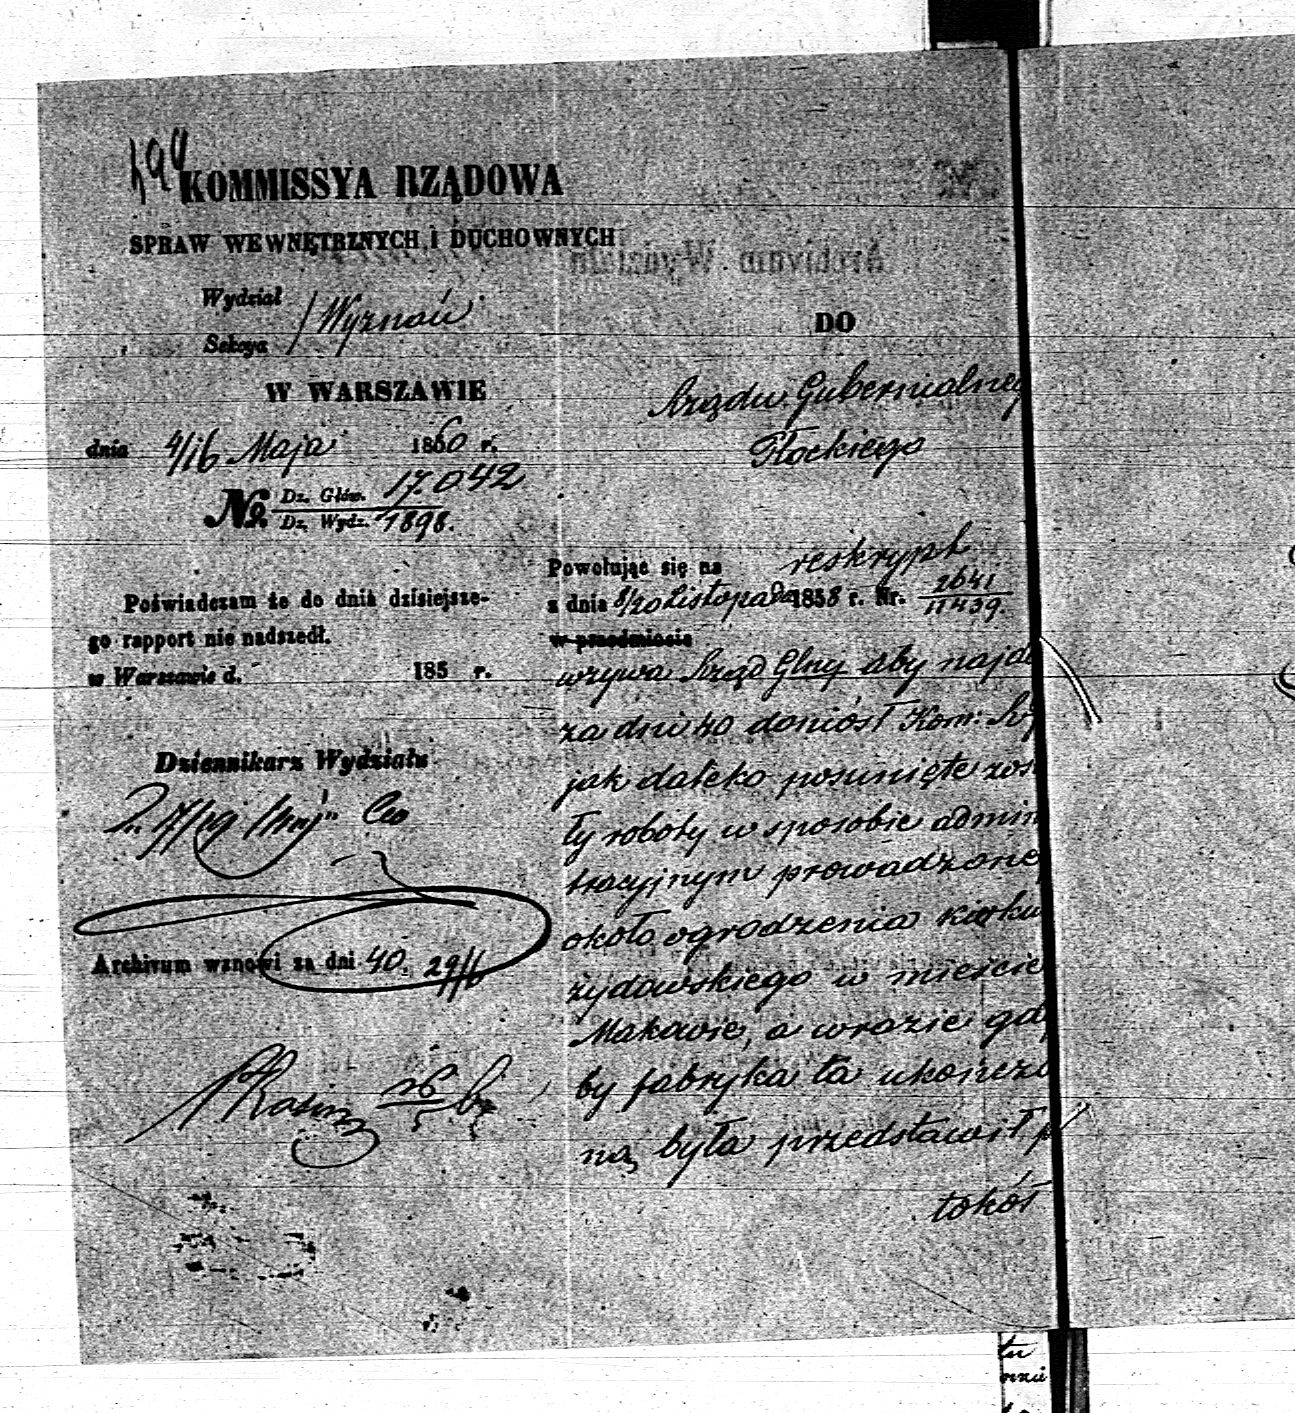 KOMMISSYA RZĄDOWA
SPRAW WEWNĘTRZNYCH I DUCHOWNYCH
Archivum Wydziału
Wydział
Sekcya
Wyznań
W WARSZAWIE
dnia 4/16 Maja 1860 r.
No Dz. Głów. 17.042
Dz. Wydz. 1898.
Poświadczam że do dnia dzisiejsze-
go rapport nie nadszedł.
w Warszawie d. 185 r.
Dziennikarz Wydziału
Archivum wznowi za dni 40. 29/6
DO
Rządu Gubernialneg
Płockiego
Powołując się na reskrypt
z dnia 8/20 Listopada 1858 r. Nr. 2641
11439.
w przedmiocie
wzywa Rząd Glny aby najda
za dni 40 doniósł Kom: Rz
jak daleko posunięte zos
ły roboty w sposobie admin
tracyjnym prowadzone
około ogrodzenia kirku
żydowskiego w mieście
Makowie, a wrazie gd
by fabryka ta ukończo
ną była przedstawił p
tokół
tu